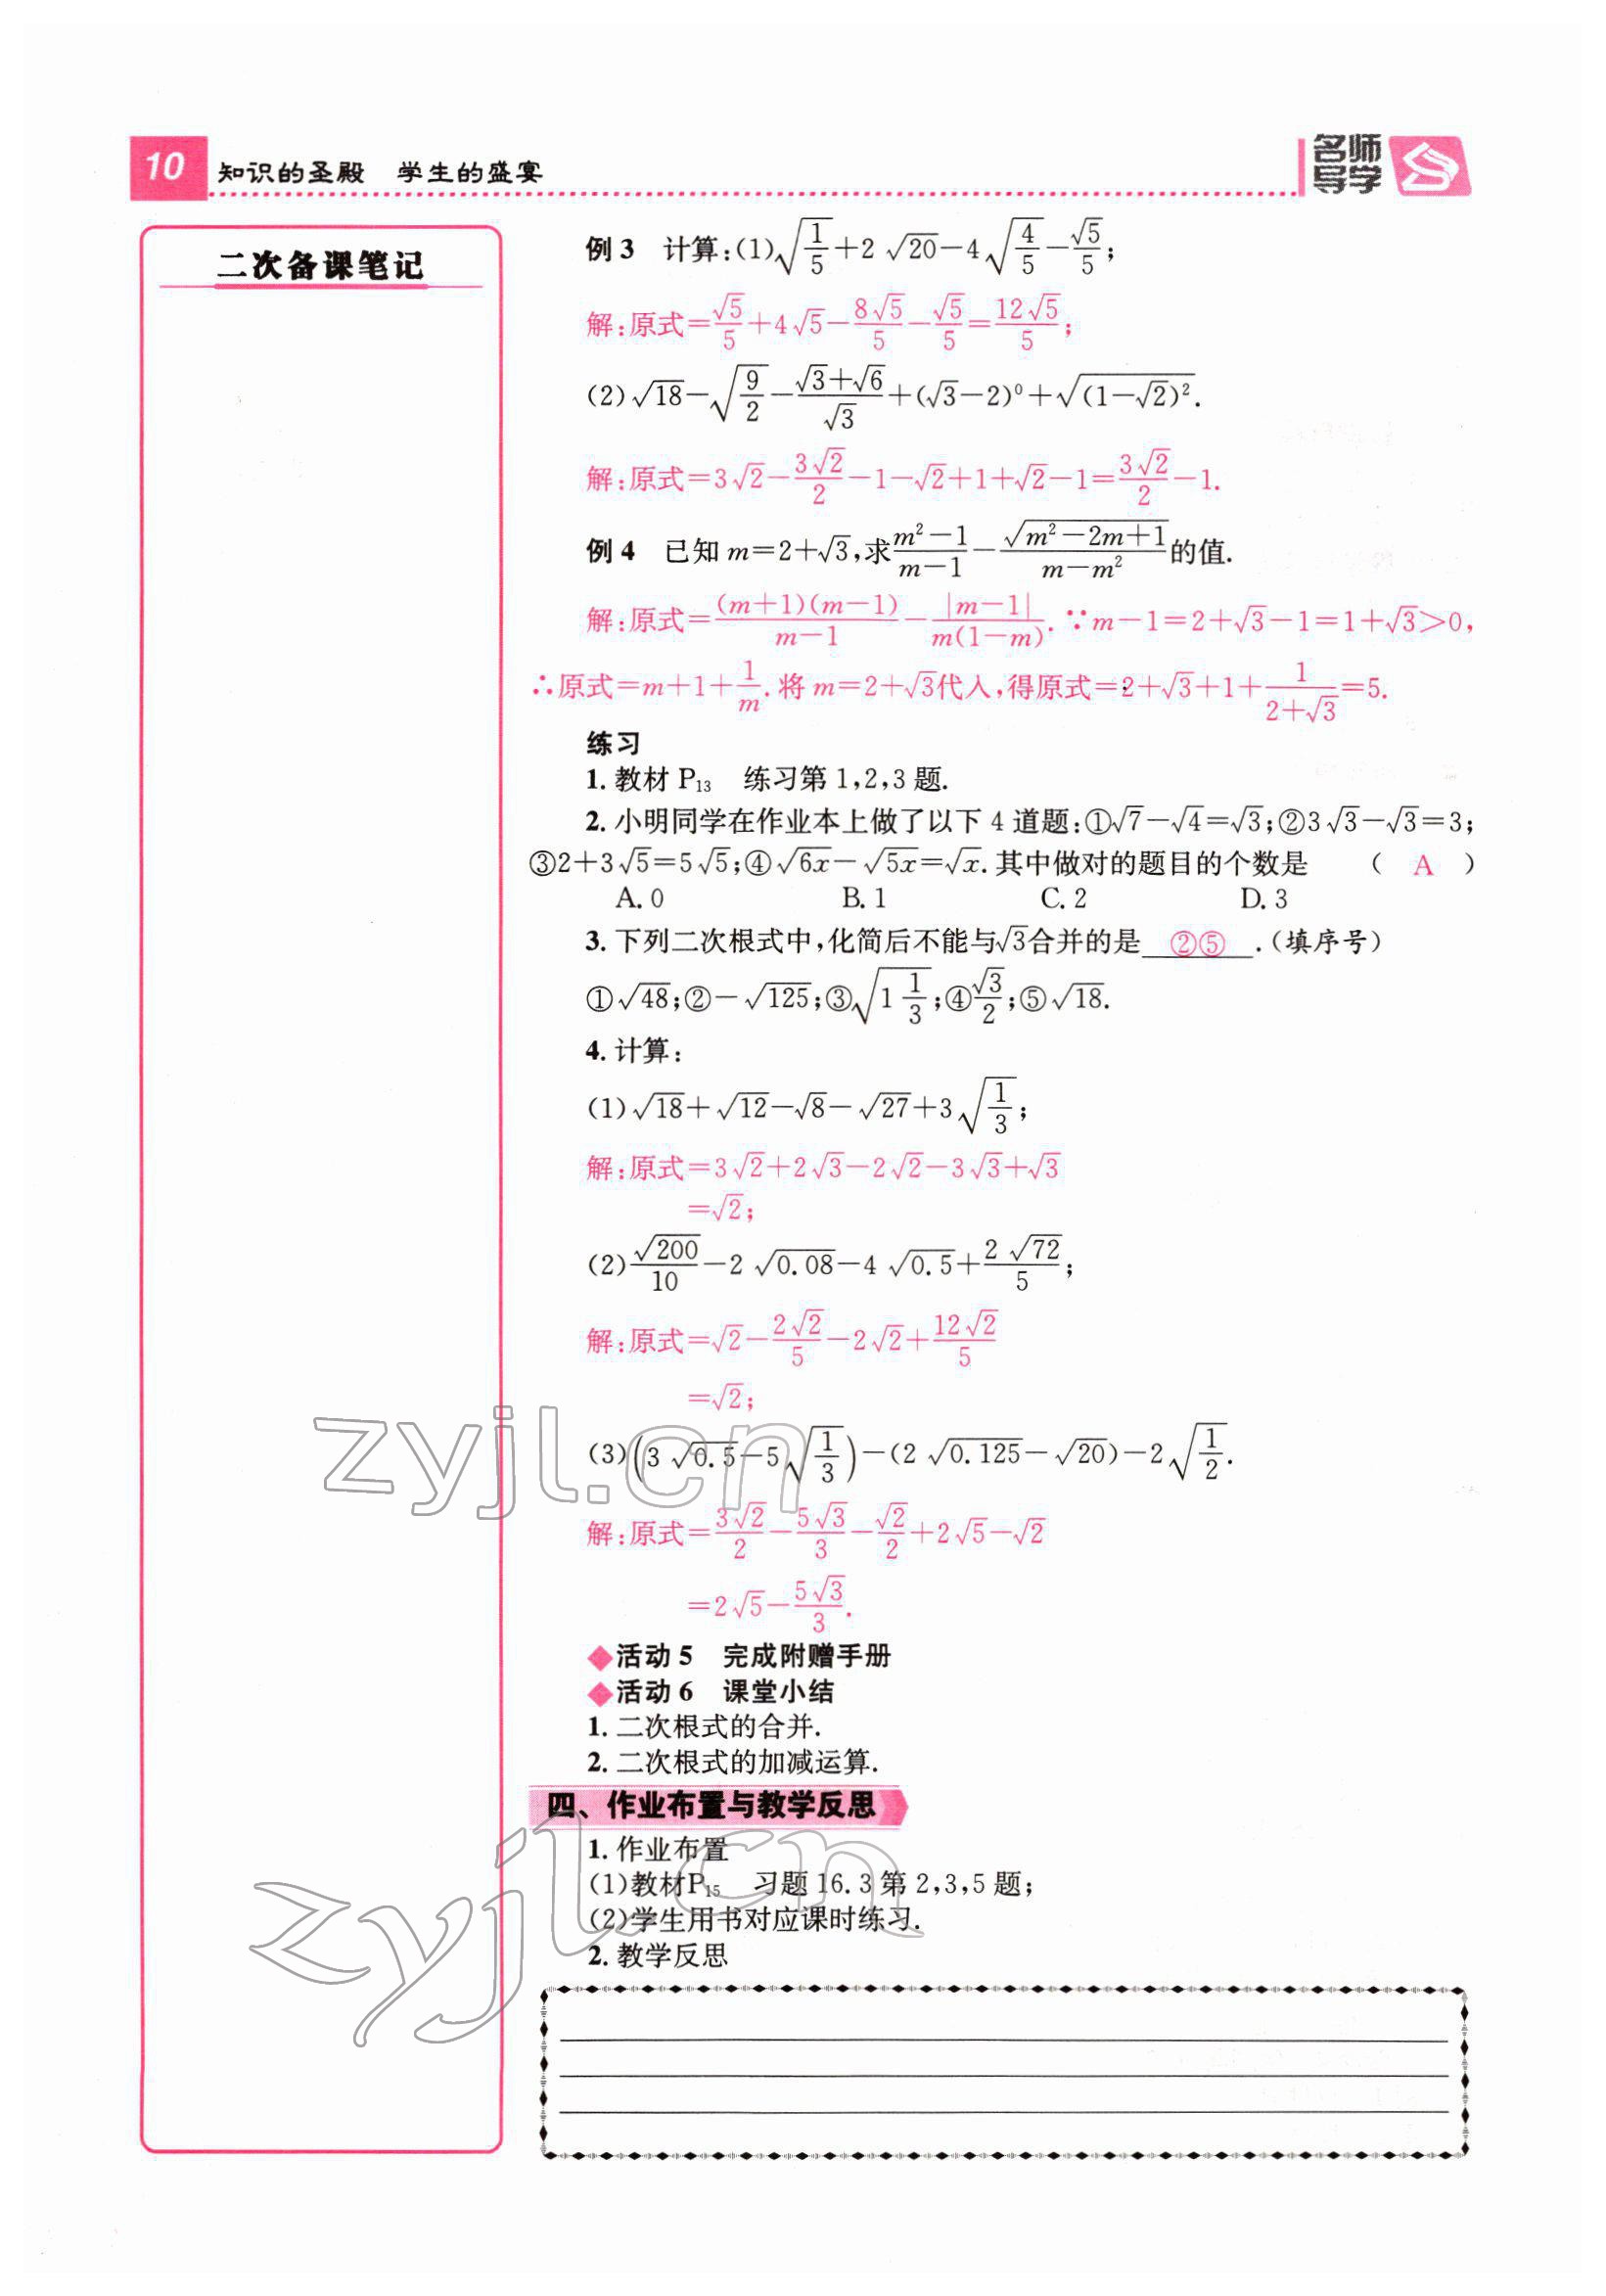 10 知识的圣殿 学生的盛宴
名师导学
二次备课笔记
例3 计算:(1)√(1/5)+2√20−4√(4/5)−√5/5;
解:原式=√5/5+4√5−8√5/5−√5/5=12√5/5;
(2)√18−√(9/2)−(√3+√6)/√3+(√3−2)⁰+√((1−√2)²).
解:原式=3√2−3√2/2−1−√2+1+√2−1=3√2/2−1.
例4 已知m=2+√3,求(m²−1)/(m−1)−√(m²−2m+1)/(m−m²)的值.
解:原式=(m+1)(m−1)/(m−1)−|m−1|/(m(1−m)).∵m−1=2+√3−1=1+√3>0,
∴原式=m+1+1/m.将m=2+√3代入,得原式=2+√3+1+1/(2+√3)=5.
练习
1.教材P₁₃ 练习第1,2,3题.
2.小明同学在作业本上做了以下4道题:①√7−√4=√3;②3√3−√3=3;
③2+3√5=5√5;④√(6x)−√(5x)=√x.其中做对的题目的个数是 ( A )
A.0 B.1 C.2 D.3
3.下列二次根式中,化简后不能与√3合并的是 ②⑤ .(填序号)
①√48;②−√125;③√(1 1/3);④√3/2;⑤√18.
4.计算:
(1)√18+√12−√8−√27+3√(1/3);
解:原式=3√2+2√3−2√2−3√3+√3
=√2;
(2)√200/10−2√0.08−4√0.5+2√72/5;
解:原式=√2−2√2/5−2√2+12√2/5
=√2;
(3)(3√0.5−5√(1/3))−(2√0.125−√20)−2√(1/2).
解:原式=3√2/2−5√3/3−√2/2+2√5−√2
=2√5−5√3/3.
◆活动5 完成附赠手册
◆活动6 课堂小结
1.二次根式的合并.
2.二次根式的加减运算.
四、作业布置与教学反思
1.作业布置
(1)教材P₁₅ 习题16.3第2,3,5题;
(2)学生用书对应课时练习.
2.教学反思
zyjl.cn
zyjl.cn